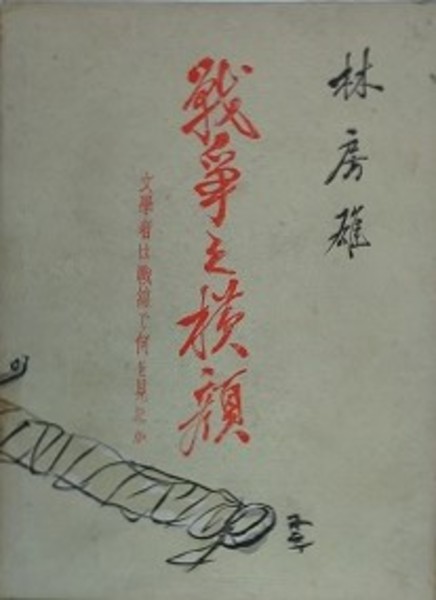 林房雄
戦争之横顔
文學者は戰線で何を見たか